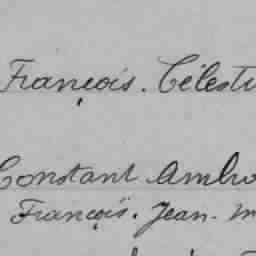 François. Célest
Constant Amb
François. Jean-